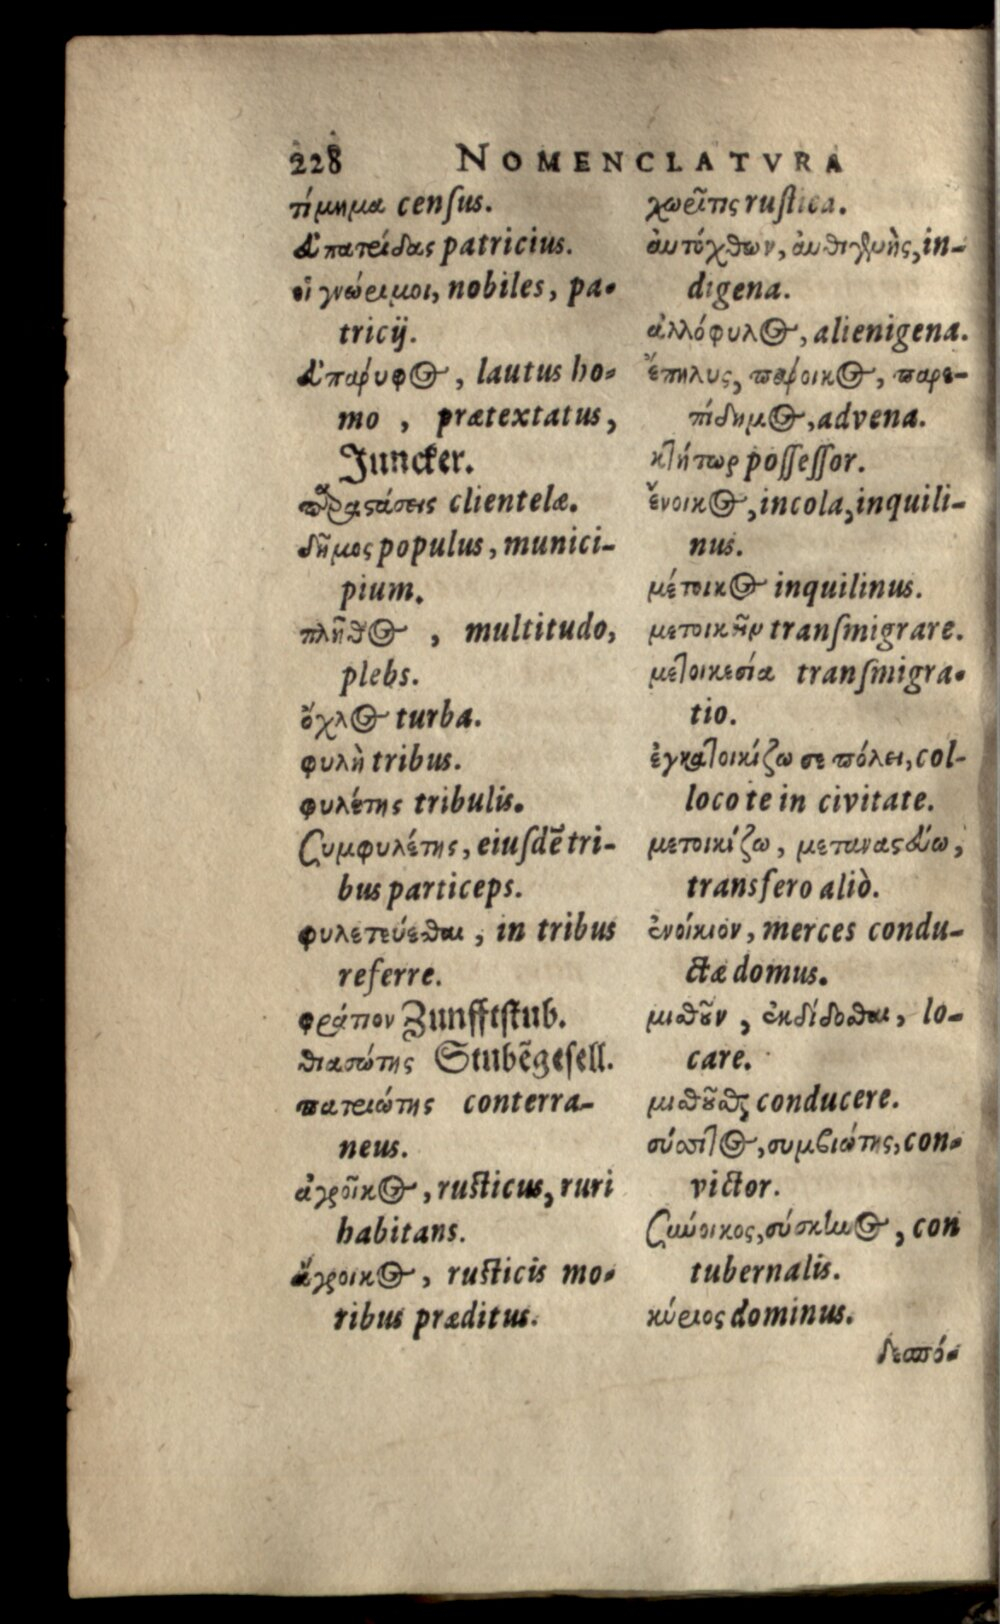 228 NOMENCLATVRA
τίμημα cenſus.
εὐπατρίδας patricius.
οἱ γνώριμοι, nobiles, pa-
tricij.
εὐπάρυφος, lautus ho-
mo, prætextatus,
Juncker.
παραστάσεις clientelæ.
δῆμος populus, munici-
pium.
πλῆθος, multitudo,
plebs.
ὄχλος turba.
φυλὴ tribus.
φυλέτης tribulis.
συμφυλέτης, eiuſdē tri-
bus particeps.
φυλετεύεσθαι, in tribus
referre.
φράτριον Zunfftſtub.
θιασώτης Stubēgeſell.
πατριώτης conterra-
neus.
ἀγροῖκος, ruſticus, ruri
habitans.
ἄγροικος, ruſticis mo-
ribus præditus.
χωρῖτις ruſtica.
αὐτόχθων, αὐθιγενὴς, in-
digena.
ἀλλόφυλος, alienigena.
ἔπηλυς, πάροικος, παρε-
πίδημος, advena.
κτήτωρ poſſeſſor.
ἔνοικος, incola, inquili-
nus.
μέτοικος inquilinus.
μετοικεῖν tranſmigrare.
μετοικεσία tranſmigra-
tio.
ἐγκατοικίζω σε πόλει, col-
loco te in civitate.
μετοικίζω, μεταναστεύω,
transfero aliò.
ἐνοίκιον, merces condu-
ctæ domus.
μισθοῦν, ἐκδίδοσθαι, lo-
care.
μισθοῦσθαι conducere.
σύσσιτος, συμβιώτης, con-
victor.
σύνοικος, σύσκηνος, con
tubernalis.
κύριος dominus.
δεσπό-